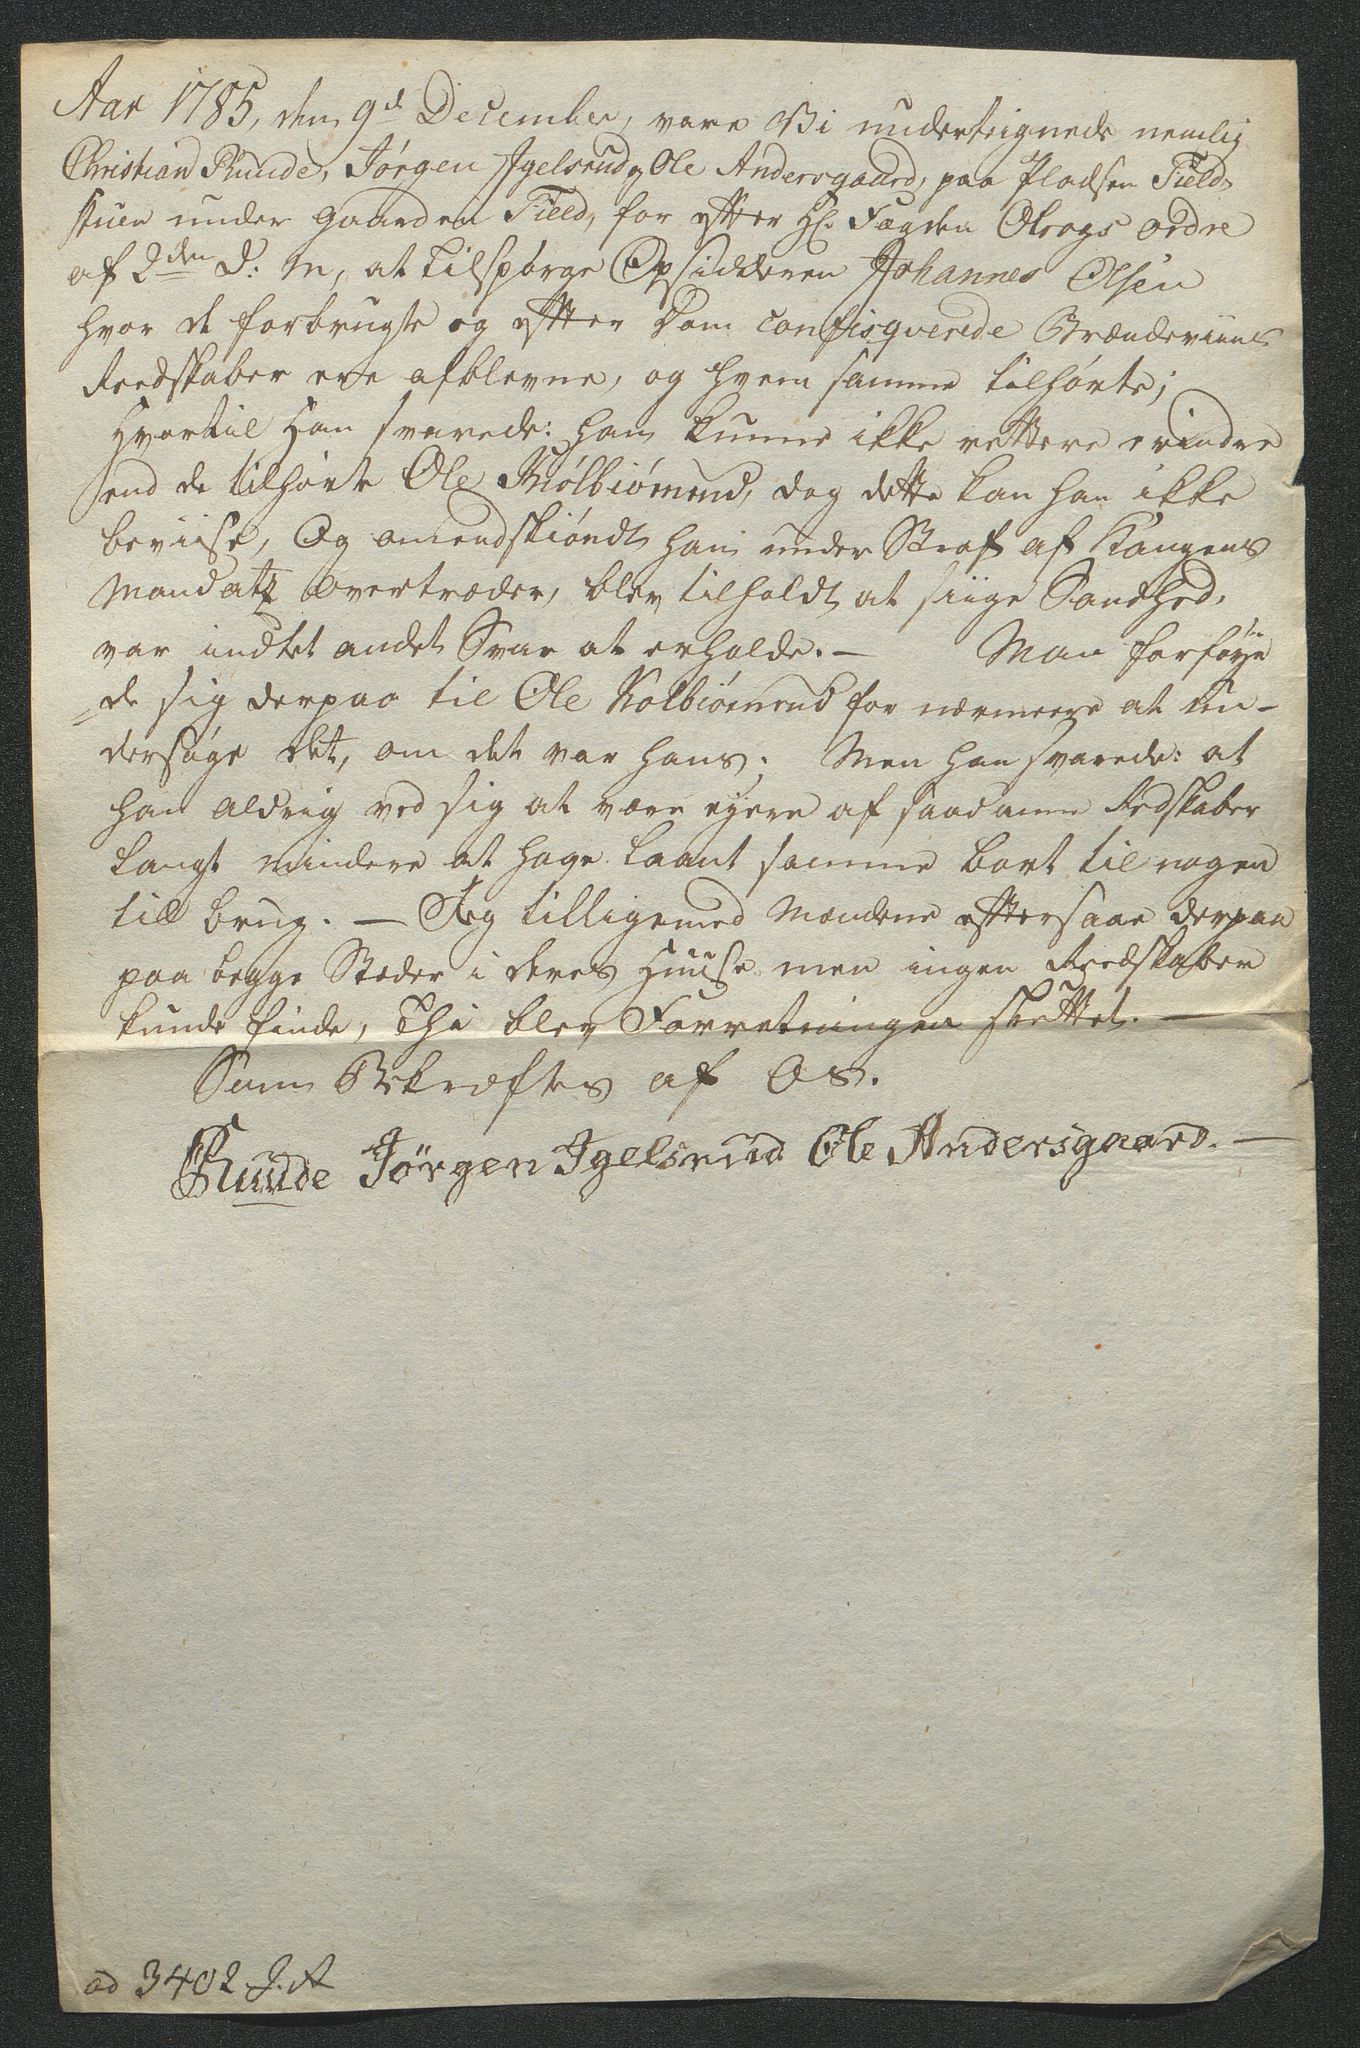 Aar 1785, den 9d December, vare Vi undertegnede nemlig
Christian Ruude, Jørgen Igelsrud og Ole Andersgaard, paa Pladsen Field
stuen under Gaarden Field, for efter Hr. Fogden ordre
af 2den d: M, at tilspørge Opsidderen Johannes Olsen
hvor de forbrugte og efter Dom confisqverede Brændeviins
Reedskaber ere afblevne, og hvem samme tilhørte;
Hvortil Han svarede: han kunne ikke rettere erindre
end de tilhørte Ole Kolbiørnrud, dog dette kan han ikke
beviise, Og omendskiøndt han under Straf af Kongens
Mandatz overtræder, blev tilholdt at siige Sandhed,
var indtet andet Svar at erholde. — Man forføye
=de sig derpaa til Ole Kolbiørnrud for nærmere at un-
dersøge det, om det var hans; Men han svarede: at
han aldrig ved sig at være eyere af saadanne Redskaber
langt mindere at have laant samme bort til nogen
till brug. — Jeg tilligemed Mændene efftersaae derpaa
paa begge Stæder i deres Huuse men ingen Reedskaber
kunde finde, Thi blev Forretningen sluttet. —
Som Bekræftes af Os.
Ruude Jørgen Igelsrud Ole Andersgaard. —
ad 3402 J. A